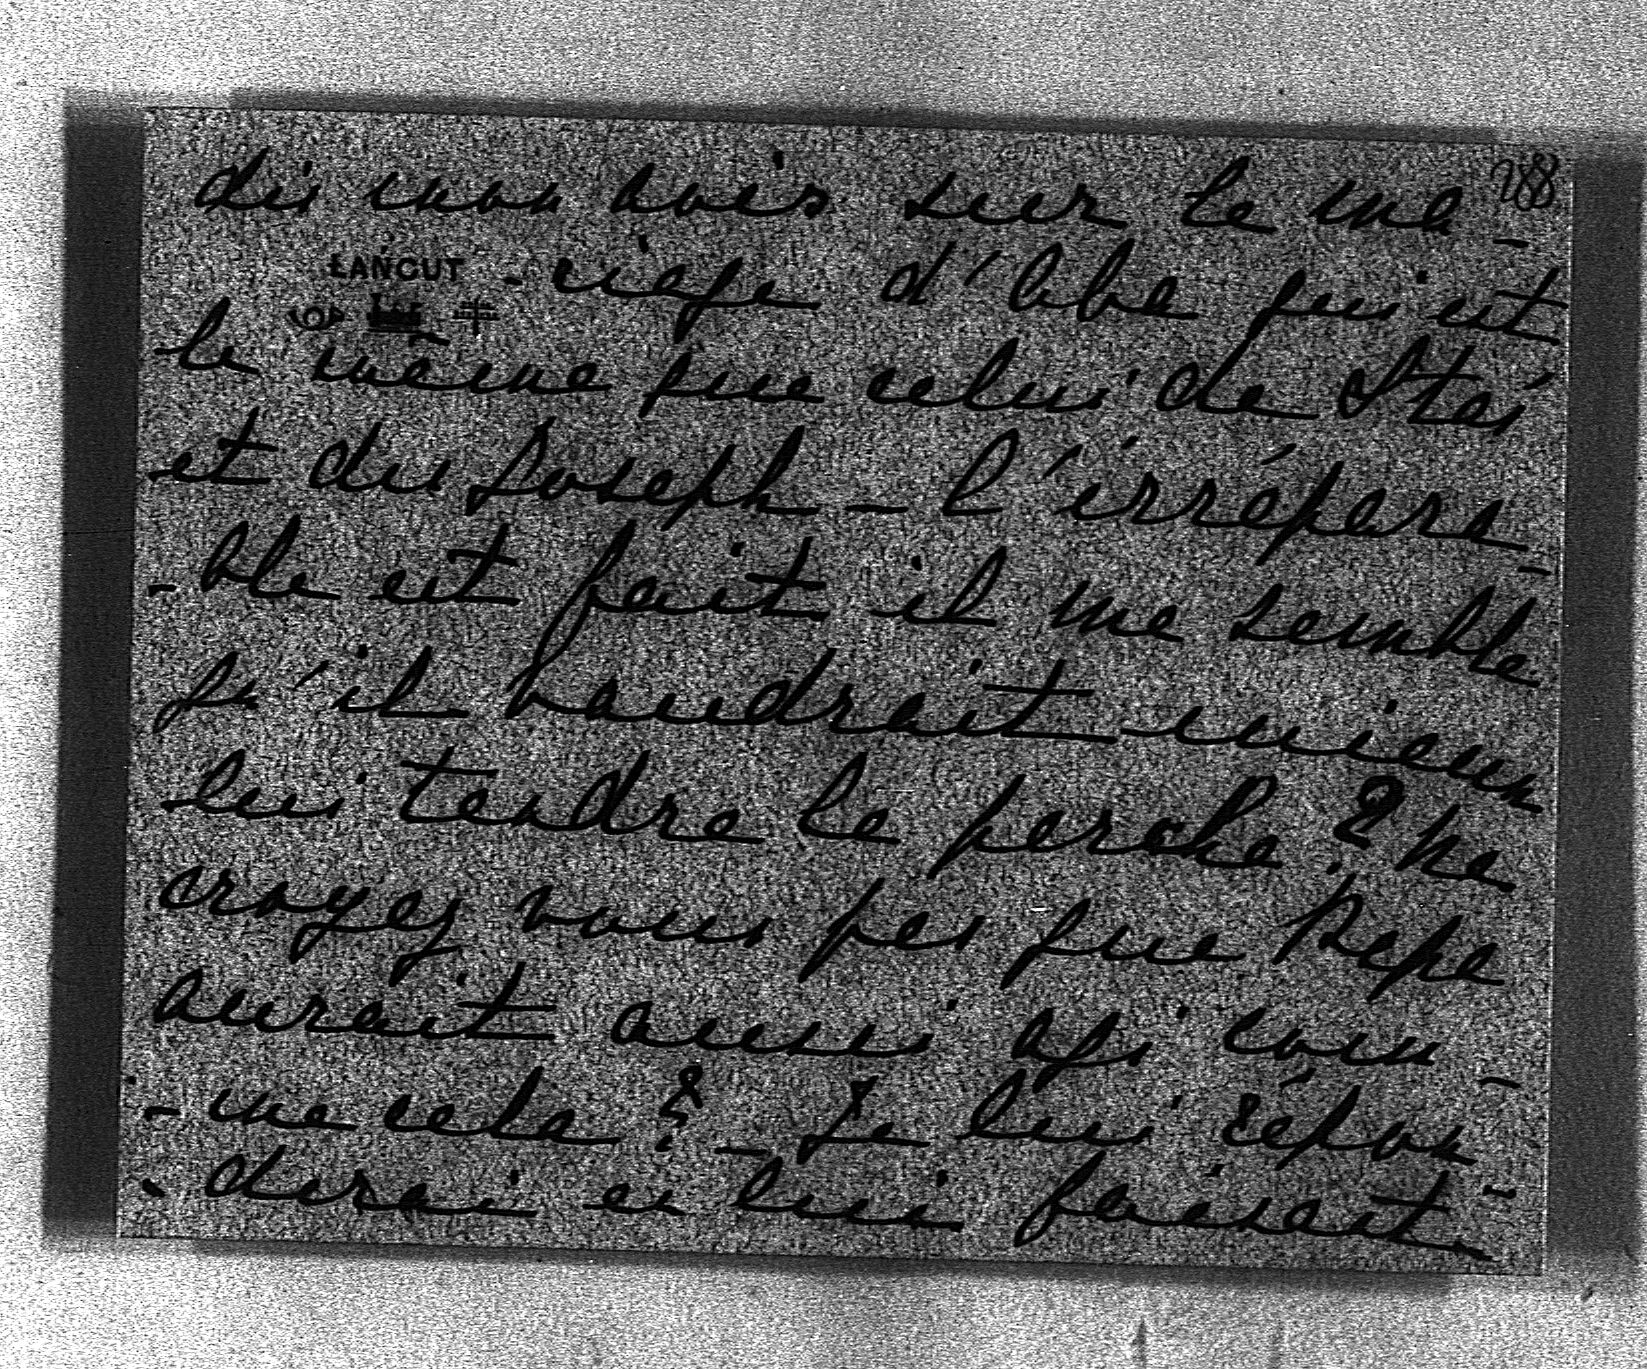 288
dis mon avis sur le ma-
ŁAŃCUT
-riage d'Alba qui est
le même que celui de
et du Joseph - l'irrépara-
-ble est fait il me semble
qu'il vaudrait mieux
lui tendre la perche ? ne
croyez vous pas que Papa
aurait aussi agi com-
-me cela ? - Je lui répon-
-derai en lui faisant